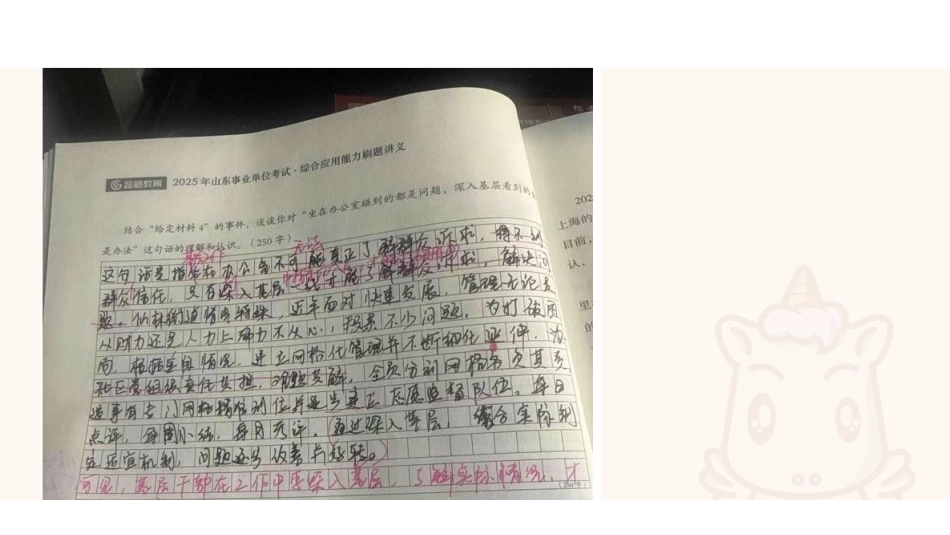 超格教育 2025年山东事业单位考试·综合应用能力刷题讲义
结合“给定材料4”的事件，谈谈你对“坐在办公室碰到的都是问题，深入基层看到的
是办法”这句话的理解和认识。（250字）
无法
这句话是指坐在办公室不可能真正了解群众诉求，得不到
群众信任，只有深入基层，才能了解群众诉求，解决问
题。仙林街道情况特殊，近年面对快速发展，管理无论是
从财力还是人力上确力不从心，积累不少问题，为打破困
局，根据实自情况，建立网格化管理并不断细化延伸，
社区党组织委任其担，难题共解，全员分到网格务员其责
凌事有专门网格
点评，每周小结，每月考评。（通过深入基层，结合实际制
定适宜机制，问题逐步改善并好转。）
可见，基层干部在工作中要深入基层，了解实际情况，才
（250字）
202
上海的
目前，
认，
里
的